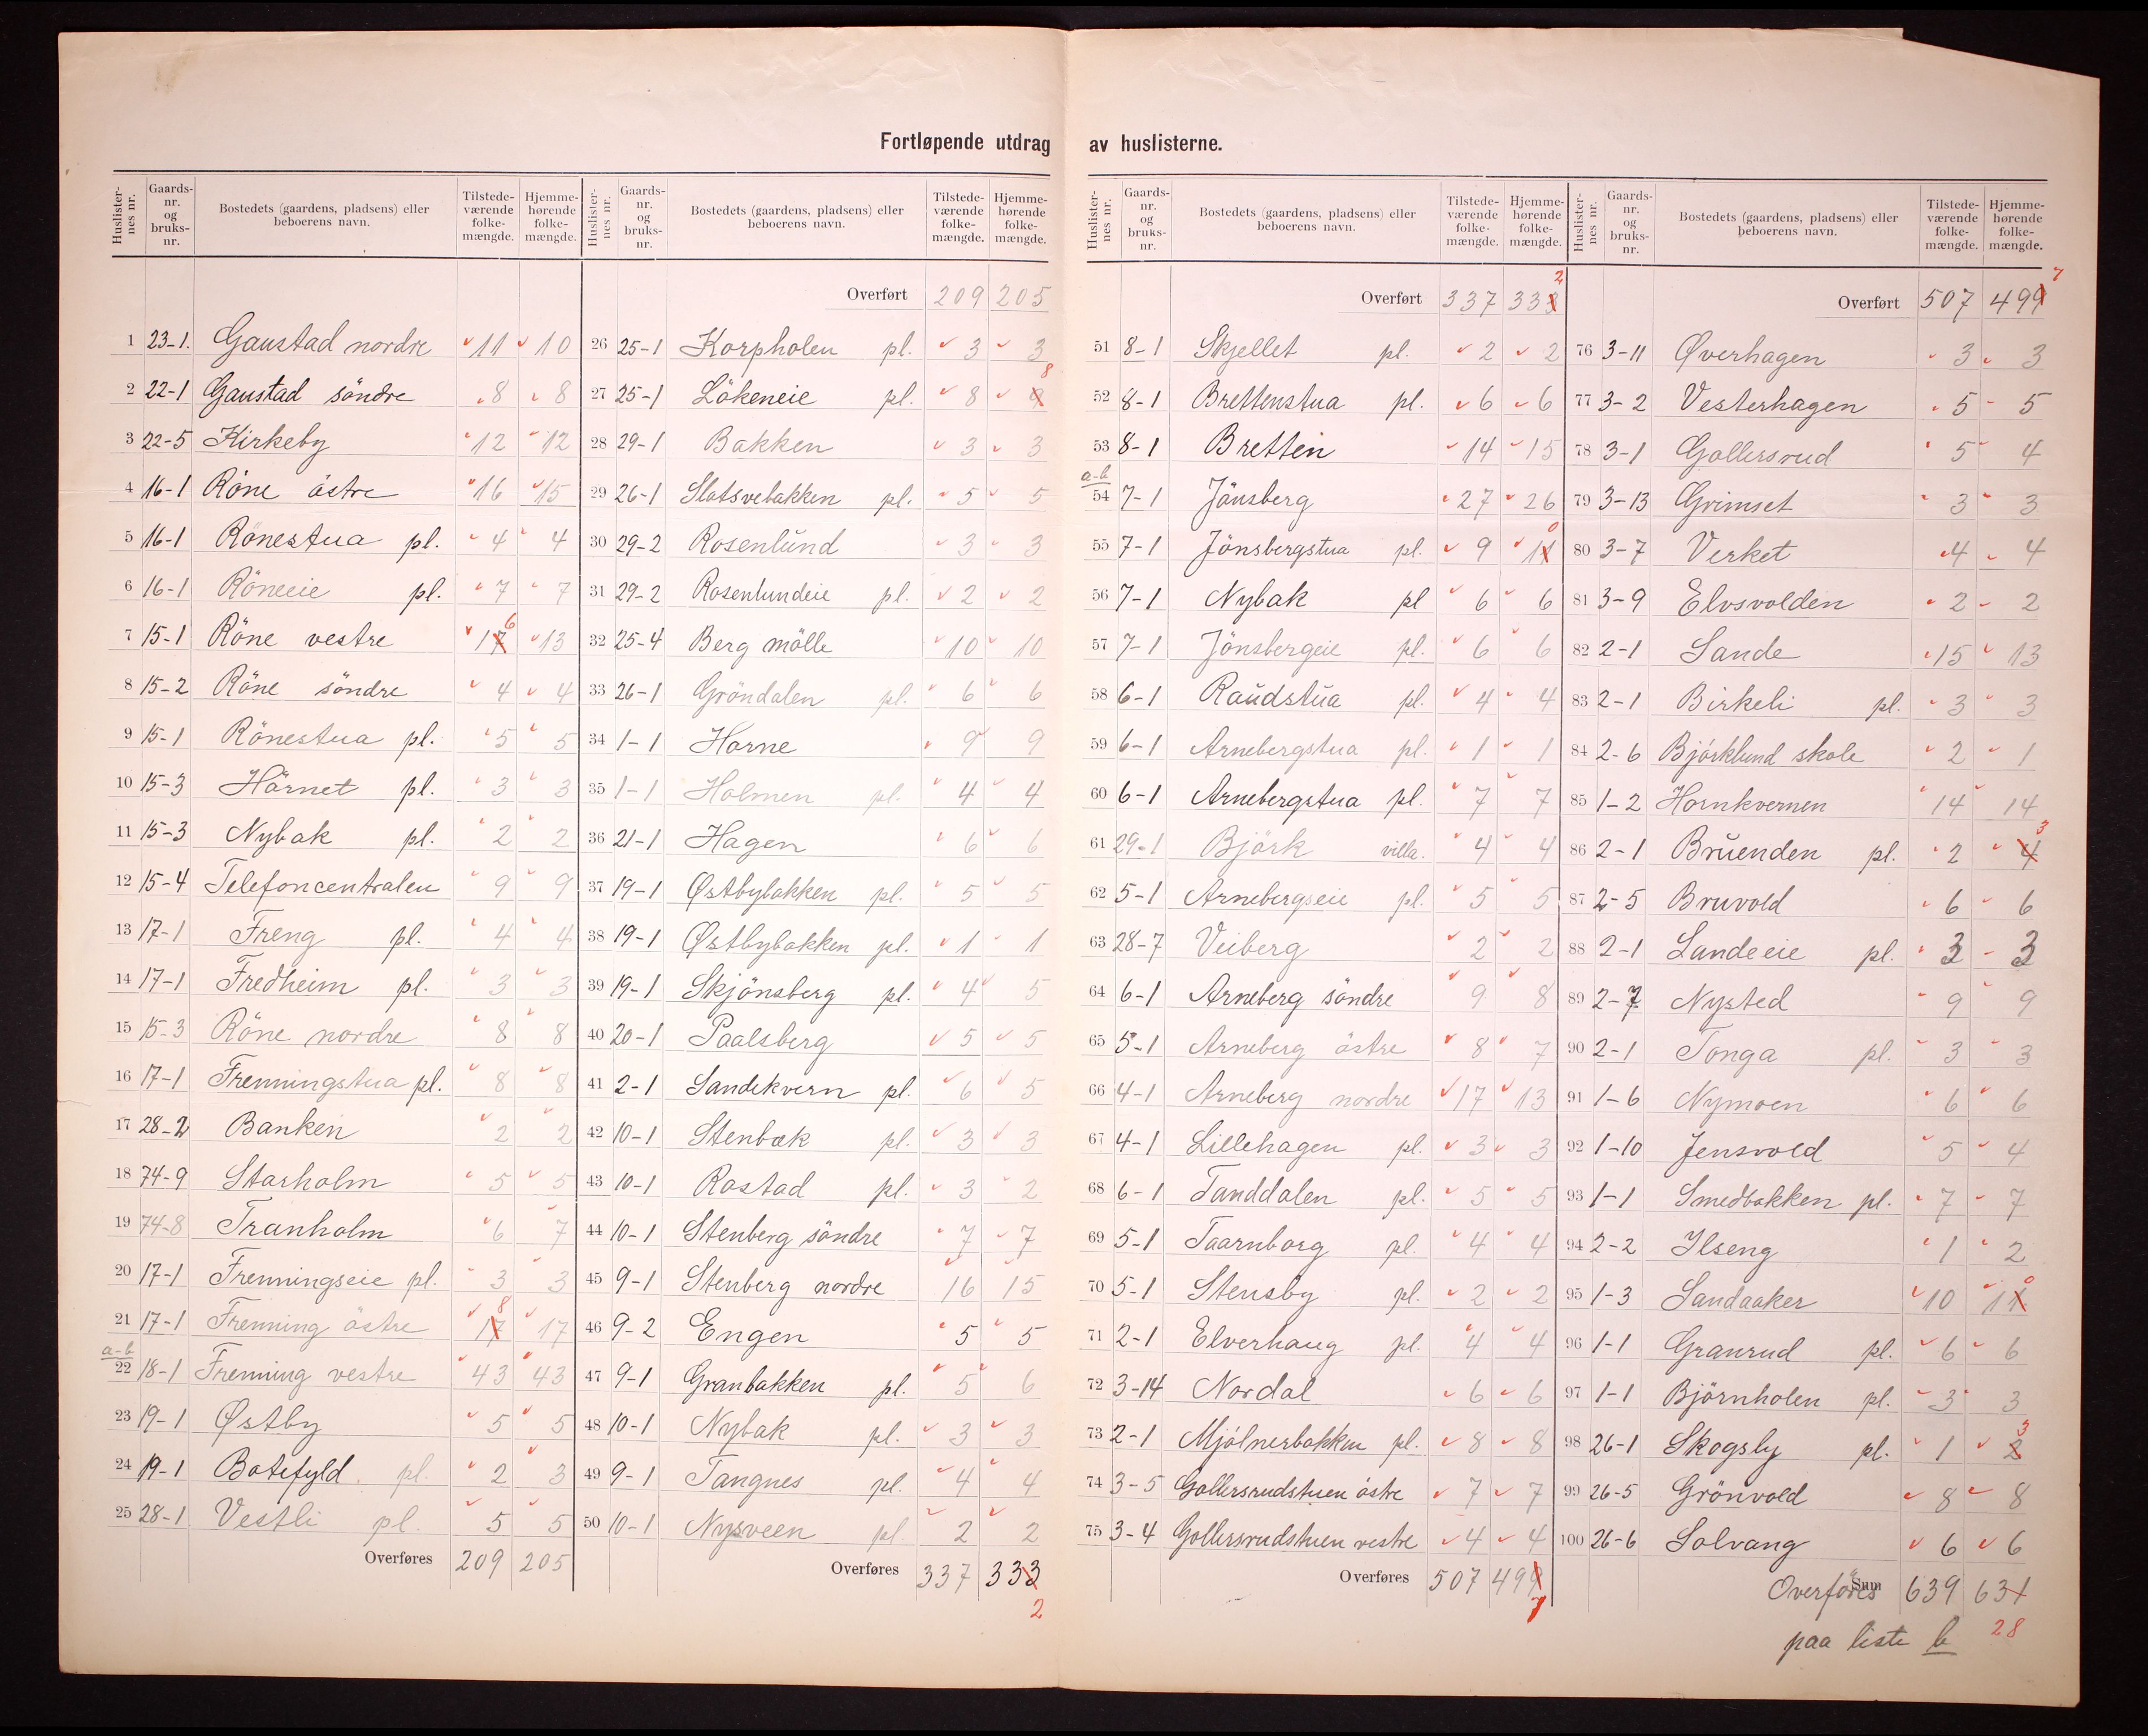 Fortløpende utdrag av huslisterne.
Huslisternes nr. Gaards-nr. og bruks-nr. Bostedets (gaardens, pladsens) eller beboerens navn. Tilstedeværende folkemængde. Hjemmehørende folkemængde.
1 23-1. Gaustad nordre 11 10
2 22-1 Gaustad söndre 8 8
3 22-5 Kirkeby 12 12
4 16-1 Röne östre 16 15
5 16-1 Rönestua pl. 4 4
6 16-1 Röneeie pl. 7 7
7 15-1 Röne vestre 17 6 13
8 15-2 Röne söndre 4 4
9 15-1 Rönestua pl. 5 5
10 15-3 Hörnet pl. 3 3
11 15-3 Nybak pl. 2 2
12 15-4 Telefoncentralen 9 9
13 17-1 Freng pl. 4 4
14 17-1 Fredheim pl. 3 3
15 15-3 Röne nordre 8 8
16 17-1 Frenningstua pl. 8 8
17 28-2 Banken 2 2
18 74-9 Starholm 5 5
19 74-8 Tranholm 6 7
20 17-1 Frenningseie pl. 3 3
21 17-1 Frenning östre 17 8 17
a-b
22 18-1 Frenning vestre 43 43
23 19-1 Østby 5 5
24 19-1 Botefyld pl. 2 3
25 28-1 Vestli pl. 5 5
Overføres 209 205
Huslisternes nr. Gaards-nr. og bruks-nr. Bostedets (gaardens, pladsens) eller beboerens navn. Tilstedeværende folkemængde. Hjemmehørende folkemængde.
Overført 209 205
26 25-1 Korpholen pl. 3 3
27 25-1 Lökeneie pl. 8 9 8
28 29-1 Bakken 3 3
29 26-1 Slotsvebakken pl. 5 5
30 29-2 Rosenlund 3 3
31 29-2 Rosenlundeie pl. 2 2
32 25-4 Berg mölle 10 10
33 26-1 Gröndalen pl. 6 6
34 1-1 Horne 9 9
35 1-1 Holmen pl. 4 4
36 21-1 Hagen 6 6
37 19-1 Østbybakken pl. 5 5
38 19-1 Østbybakken pl. 1 1
39 19-1 Skjönsberg pl. 4 5
40 20-1 Paalsberg 5 5
41 2-1 Sandekvern pl. 6 5
42 10-1 Stenbæk pl. 3 3
43 10-1 Rostad pl. 3 2
44 10-1 Stenberg söndre 7 7
45 9-1 Stenberg nordre 16 15
46 9-2 Engen 5 5
47 9-1 Granbakken pl. 5 6
48 10-1 Nybak pl. 3 3
49 9-1 Tangnes pl. 4 4
50 10-1 Nysveen pl. 2 2
Overføres 337 333
2
Huslisternes nr. Gaards-nr. og bruks-nr. Bostedets (gaardens, pladsens) eller beboerens navn. Tilstedeværende folkemængde. Hjemmehørende folkemængde.
Overført 337 333 2
51 8-1 Skjellet pl. 2 2
52 8-1 Brettenstua pl. 6 6
53 8-1 Bretten 14 15
a-b
54 7-1 Jönsberg 27 26
55 7-1 Jönsbergstua pl. 9 11 0
56 7-1 Nybak pl 6 6
57 7-1 Jönsbergeie pl. 6 6
58 6-1 Raudstua pl. 4 4
59 6-1 Arnebergstua pl. 1 1
60 6-1 Arnebergstua pl. 7 7
61 29-1 Björk villa. 4 4
62 5-1 Arnebergseie pl. 5 5
63 28-7 Veiberg 2 2
64 6-1 Arneberg söndre 9 8
65 5-1 Arneberg östre 8 7
66 4-1 Arneberg nordre 17 13
67 4-1 Lillehagen pl. 3 3
68 6-1 Tanddalen pl. 5 5
69 5-1 Taarnborg pl. 4 4
70 5-1 Stensby pl. 2 2
71 2-1 Elverhaug pl. 4 4
72 3-14 Nordal 6 6
73 2-1 Mjölnerbakken pl. 8 8
74 3-5 Gollersrudstuen östre 7 7
75 3-4 Gollersrudstuen vestre 4 4
Overføres 507 499
7
Huslisternes nr. Gaards-nr. og bruks-nr. Bostedets (gaardens, pladsens) eller beboerens navn. Tilstedeværende folkemængde. Hjemmehørende folkemængde.
Overført 507 499 7
76 3-11 Øverhagen 3 3
77 3-2 Vesterhagen 5 5
78 3-1 Gollersrud 5 4
79 3-13 Grimset 3 3
80 3-7 Verket 4 4
81 3-9 Elvsvolden 2 2
82 2-1 Sande 15 13
83 2-1 Birkeli pl. 3 3
84 2-6 Björklund skole 2 1
85 1-2 Hornkvernen 14 14
86 2-1 Bruenden pl. 2 4 3
87 2-5 Bruvold 6 6
88 2-1 Sandeeie pl. 3 3
89 2-7 Nysted 9 9
90 2-1 Tonga pl. 3 3
91 1-6 Nymoen 6 6
92 1-10 Jensvold 5 4
93 1-1 Smedbakken pl. 7 7
94 2-2 Ilseng 1 2
95 1-3 Sandaaker 10 11 0
96 1-1 Granrud pl. 6 6
97 1-1 Björnholen pl. 3 3
98 26-1 Skogsly pl. 1 2 3
99 26-5 Grönvold 8 8
100 26-6 Solvang 6 6
Sum Overføres 639 631
paa liste b 28